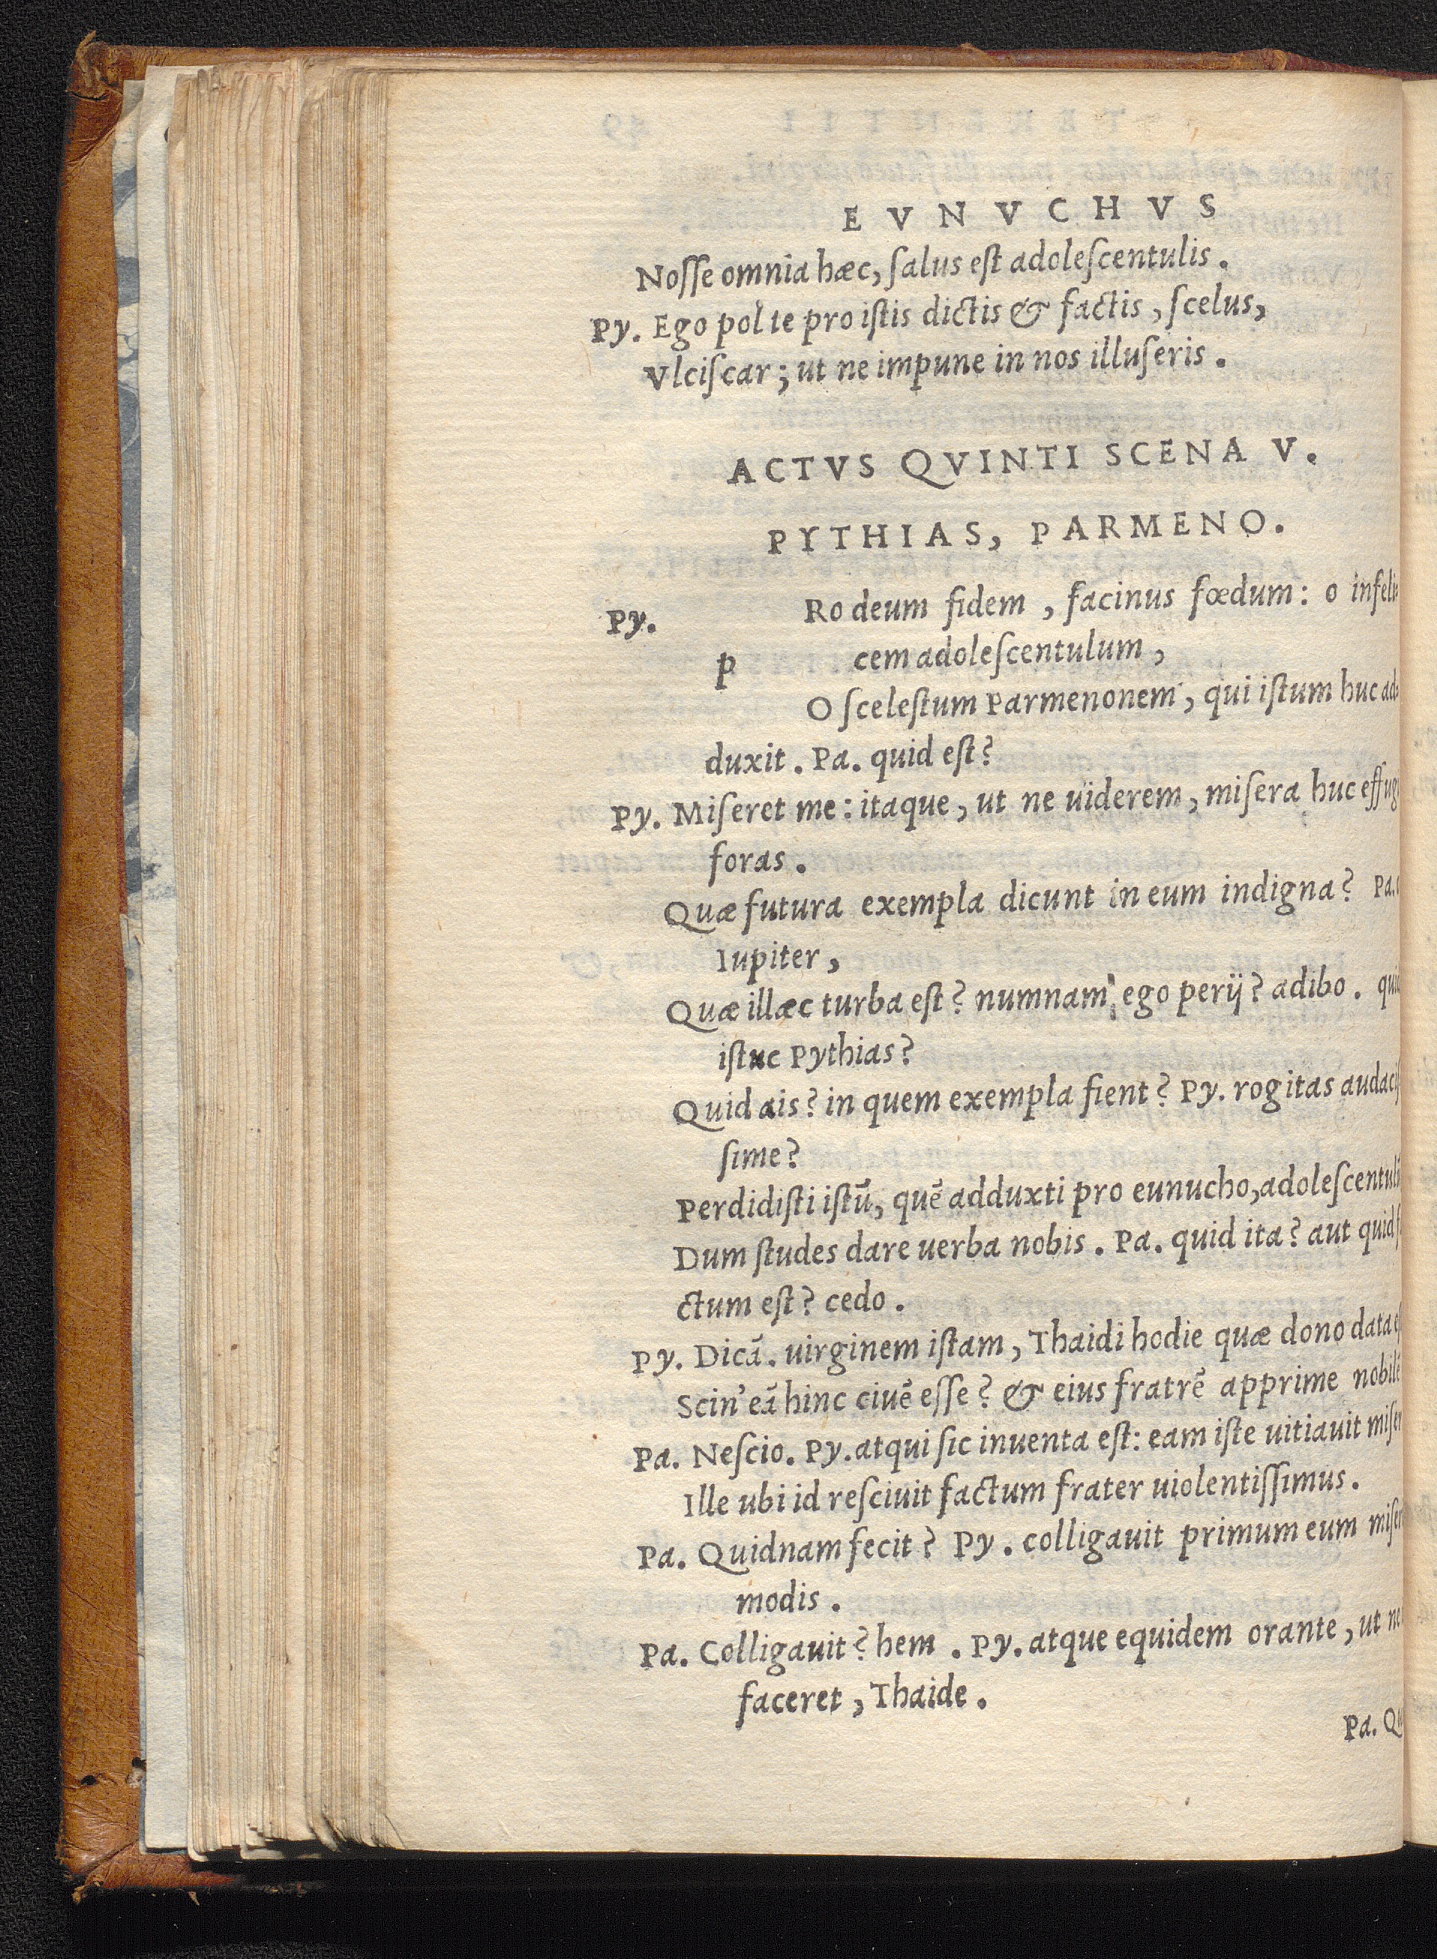 EVNVCHVS
Nosse omnia hæc, salus est adolescentulis.
Py. Ego pol te pro istis dictis & factis, scelus,
Vlciscar; ut ne impune in nos illuseris.
ACTVS QVINTI SCENA V.
PYTHIAS, PARMENO.
Py.
p
Ro deum fidem, facinus fœdum: o infeli
cem adolescentulum,
O scelestum Parmenonem, qui istum huc ad
duxit. Pa. quid est?
Py. Miseret me: itaque, ut ne uiderem, misera huc effug
foras.
Quæ futura exempla dicunt in eum indigna? Pa.
Iupiter,
Quæ illæc turba est? numnam ego perij? adibo. qui
istuc Pythias?
Quid ais? in quem exempla fient? Py. rogitas audacis
sime?
Perdidisti istū, quē adduxti pro eunucho, adolescentul
Dum studes dare uerba nobis. Pa. quid ita? aut quid f
ctum est? cedo.
Py. Dicā. uirginem istam, Thaidi hodie quæ dono data e
Scin' eā hinc ciuē esse? & eius fratrē apprime nobilē
Pa. Nescio. Py. atqui sic inuenta est: eam iste uitiauit miser
Ille ubi id resciuit factum frater uiolentissimus.
Pa. Quidnam fecit? Py. colligauit primum eum miser
modis.
Pa. Colligauit? hem. Py. atque equidem orante, ut ne
faceret, Thaide.
Pa. Q